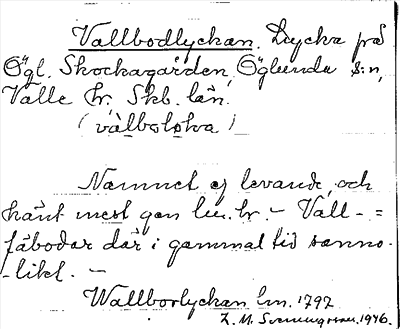 Vallbodlyckan. Lycka på
Ögl. Skockagården, Öglunda s:n,
Valle hr. Skb. län.
(vàlboloka)
Namnet ej levande, och
känt mest gen lm. hr. - Vall- =
fäbodar där i gammal tid sanno-
-likt. -
Wallborlyckan lm. 1797
Z. M. Svenungsson. 1946.